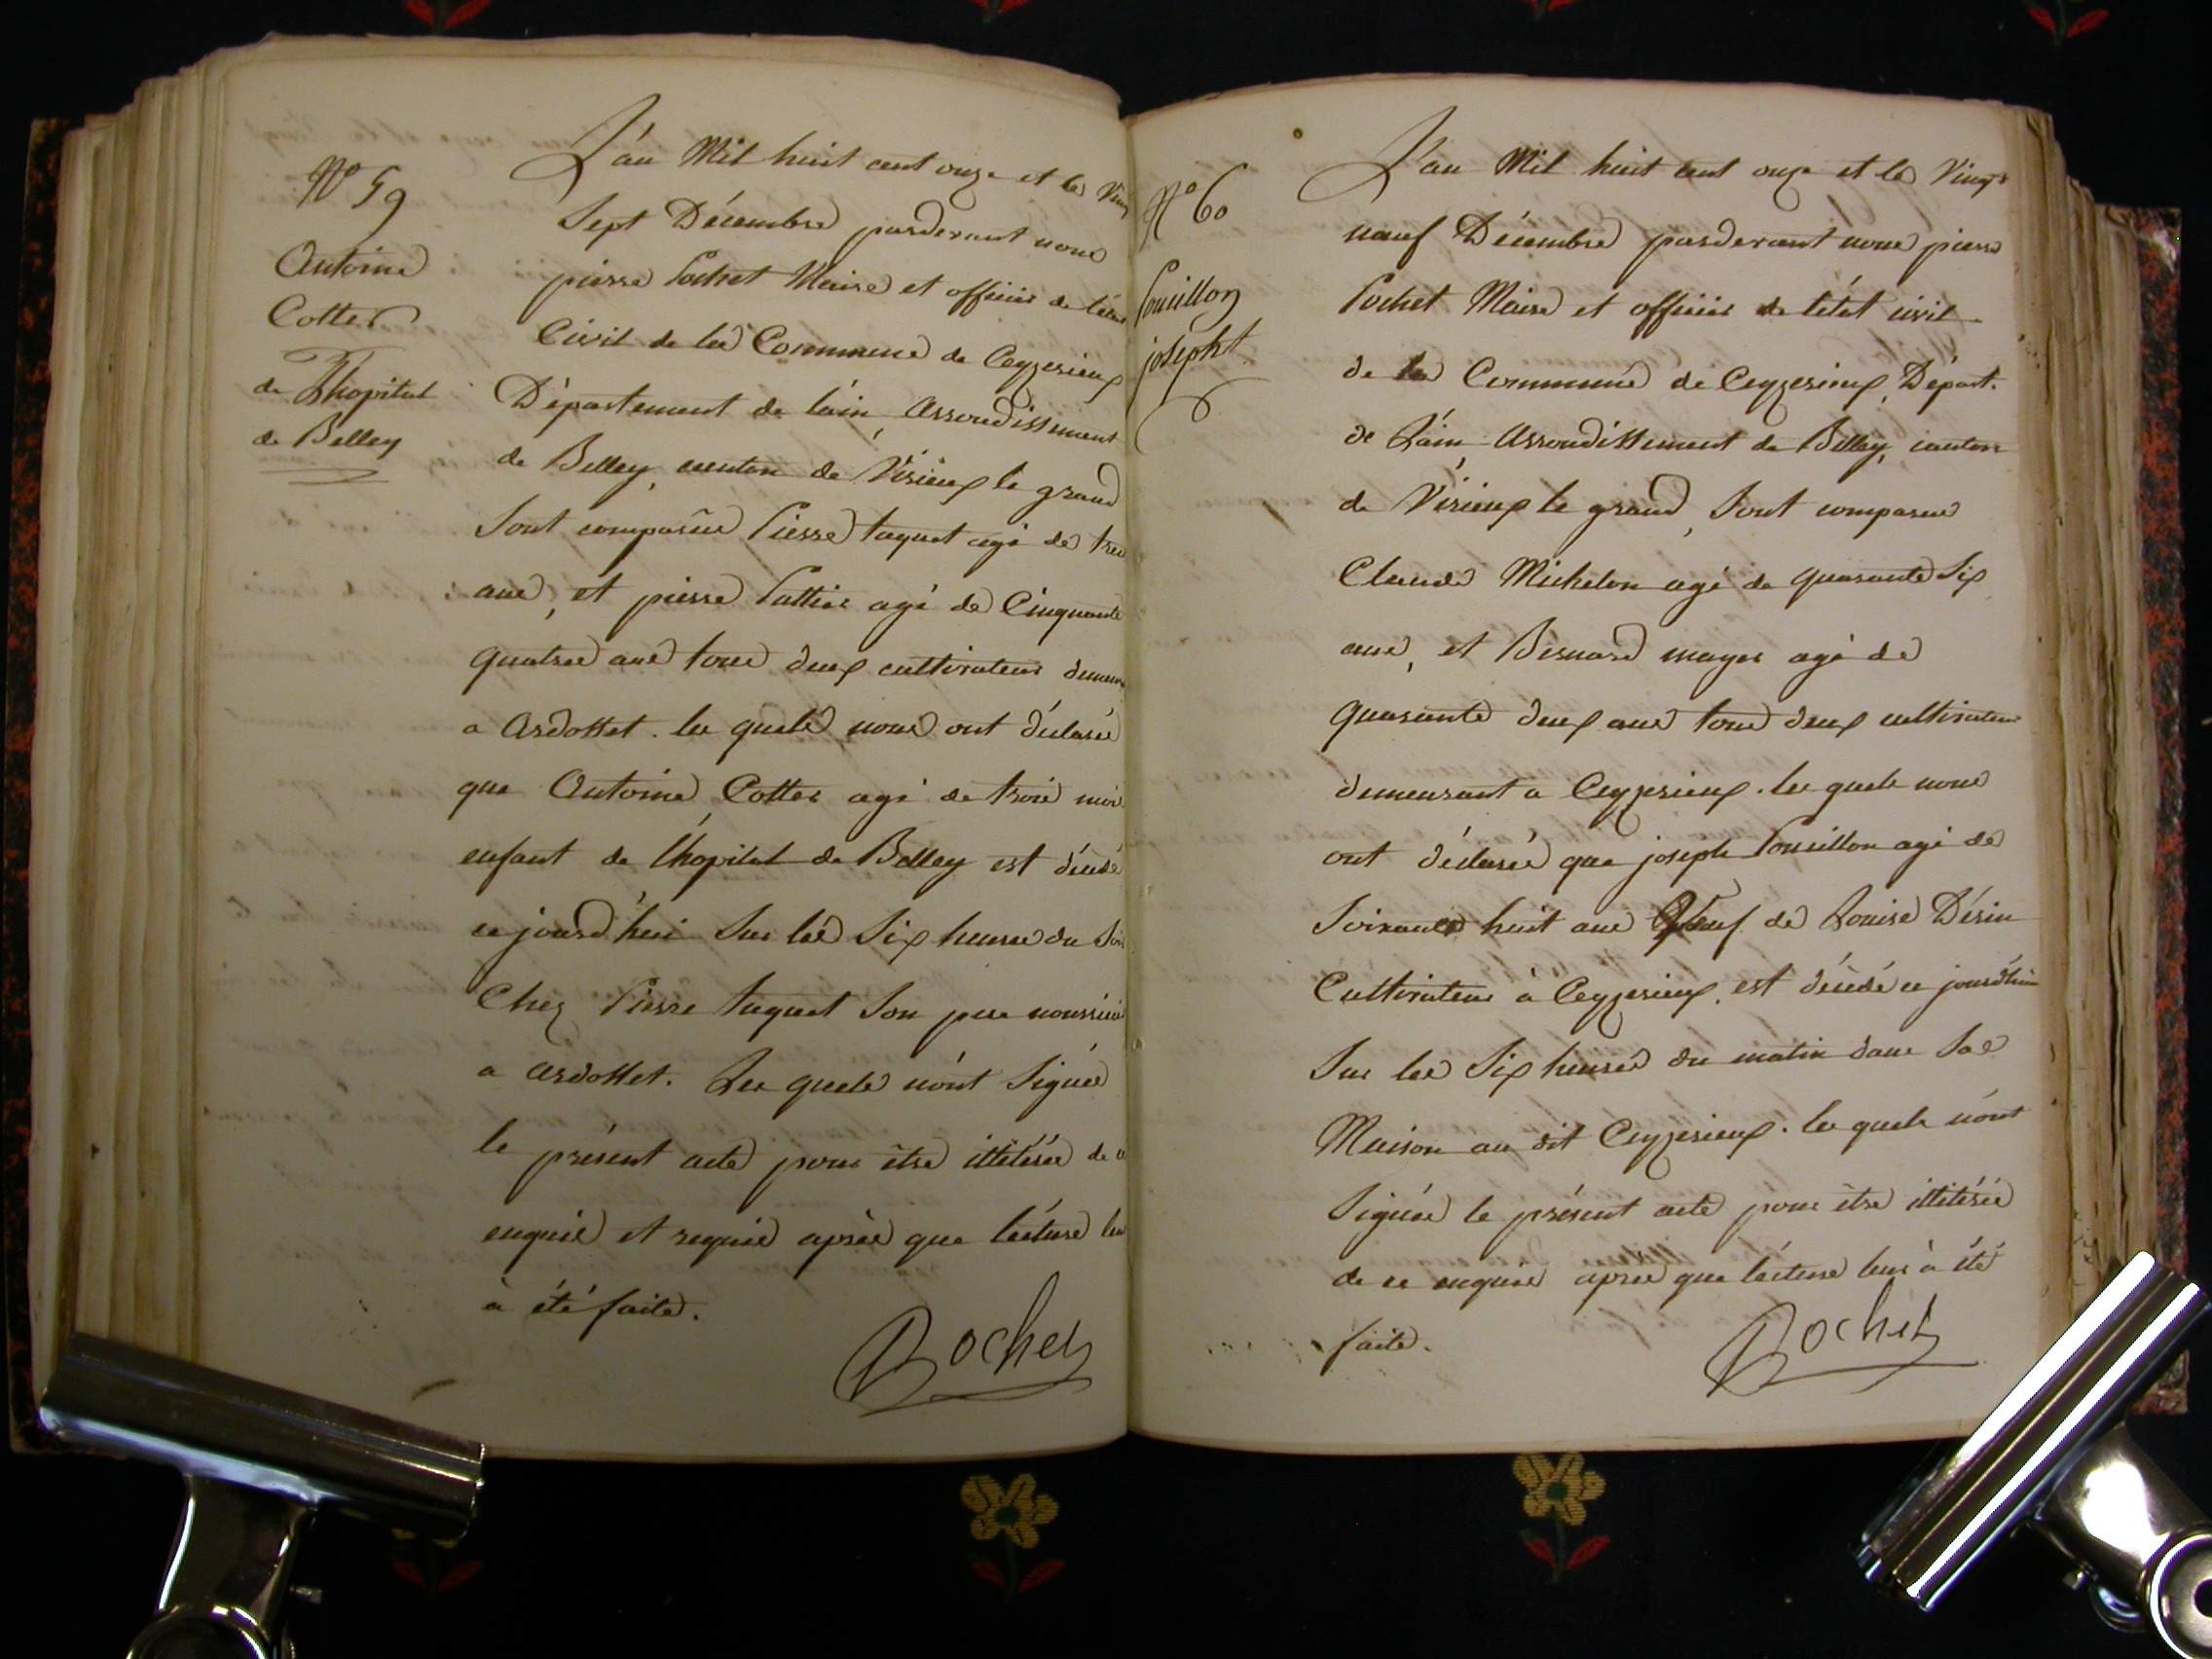 N° 59
Antoine
Cotter
de L'hopital
de Belley
L'an Mil huit cent onze et le Vingt
Sept Décembre pardevant nous
pierre Pochet Maire et officier de l'état
Civil de la Commune de Ceyzerieux
Département de l'ain, Arrondissement
de Belley, canton de Virieux le grand
Sont comparus Pierre taquet agé de
ans, et pierre Pattier agé de Cinquante
quatres ans tous deux cultivateurs
a Ardosset. les quels nous ont déclarés
que Antoine Cotter agé de trois mois
enfant de l'hopital de Belley est décédé
ce jourd'hui Sur les Six heures du Soir
Chez Pierre taquet Son pere nourricier
a ardosset. Les quels n'ont Signés
le présent acte pour être illitérés de ce
enquis et requis après que lécture leur
à été faite.
Pochet
N° 60
Pouillon
josepht
L'an Mil huit cent onze et le Vingt
neuf Décembre pardevant nous pierre
Pochet Maire et officier de l'état civil
de la Commune de Ceyzerieux, Départ.
de L'ain, Arrondissement de Belley, canton
de Virieux le grand, Sont comparus
Claude Michelon agé de quarante Six
ans, et Bernard mayer agé de
quarante deux ans tous deux cultivateurs
demeurant a Ceyzerieux. les quels nous
ont déclarés que joseph Pouillon agé de
Soixante huit ans Veuf de Louise Dérin
Cultivateur à Ceyzerieux, est décédé ce jourd'hui
Sur les Six heures du matin dans Sa
Maison au dit Ceyzerieux. les quels n'ont
Signés le présent acte pour être illitérés
de ce enquis apres que lécture leur à été
faite.
Pochet